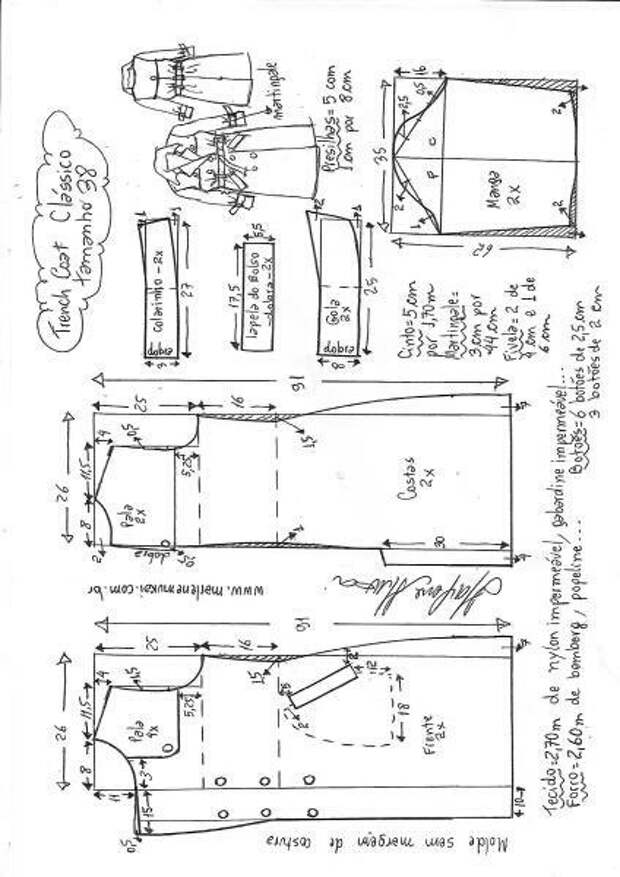 Trench Coat Clássico
tamanho 38
martingale
Presilhas = 5 com
1 cm por 8 cm
16
0,5
2,5
35
C
P
2
1
Manga
2x
2
2
62
1
1
colarinho - 2x
dobra
3
27
5,5
17,5
lapela do bolso
-dobra-2x
2
Gola
2x
dobra
8
25
Cinto = 5 cm
por 1,70 m
Martingale =
3 cm por
44 cm
Fivela = 2 de
4 cm e 1 de
6 cm
91
25
16
4
0,5
11,5
26
8
5,25
Pala
2x
2
dobra
0,5
1,5
1
Costas
2x
30
7
5
www.marlenemukai.com.br
91
25
16
4
1,5
11,5
26
8
5,25
Pala
4x
3
11
15
0,5
1,5
2
12
18
2
Frente
2x
7
10
Molde sem margem de costura
Tecido = 2,70 m de nylon impermeável, gabardine impermeável...
Forro = 2,60 m de bemberg, popeline...
Botões = 6 botões de 2,5 cm
3 botões de 2 cm